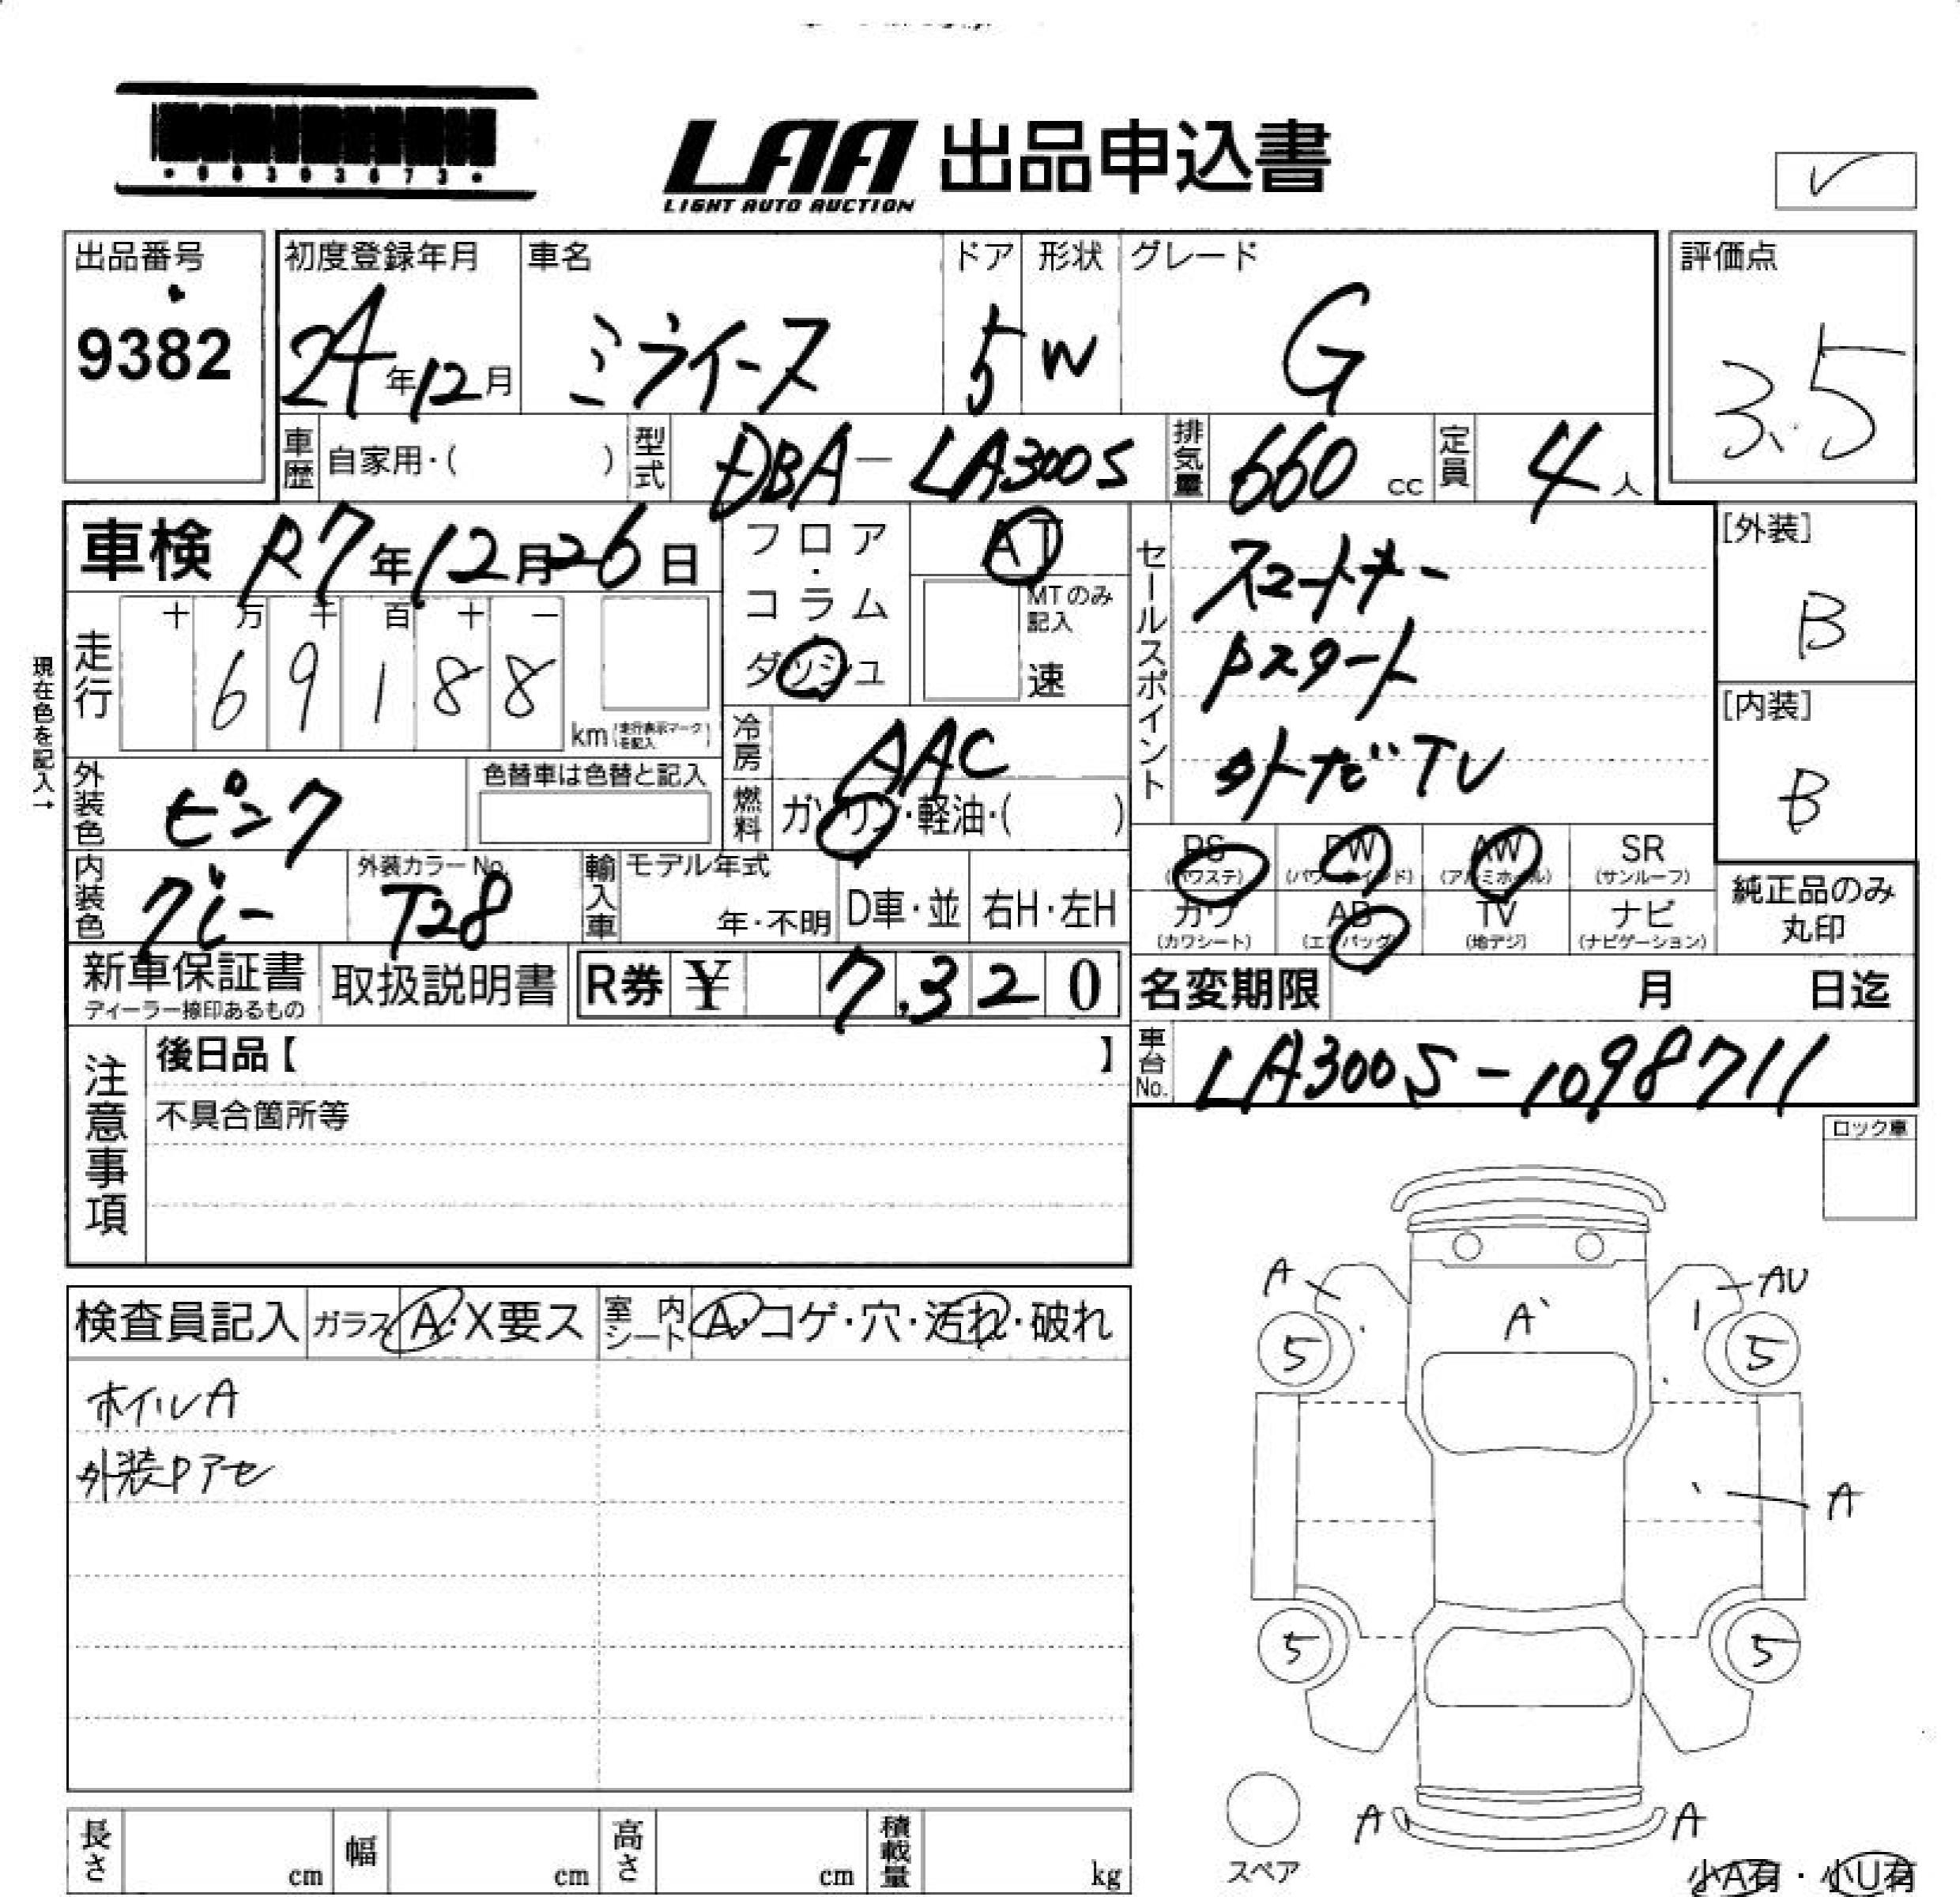 LAA 出品申込書
LIGHT AUTO AUCTION
✓
出品番号
9382
初度登録年月
24年12月
車名
ミライース
ドア
5
形状
W
グレード
G
評価点
3.5
車歴 自家用・( )
型式 DBA-LA300S
排気量 660 cc
定員 4人
車検 R7年12月26日
フロア・コラム
ダッシュ
AT
MTのみ記入
速
現在色を記入→
走行
十 万 千 百 十 一
6 9 1 8 8
km 走行表示マークを記入
冷房 AAC
燃料 ガソリン・軽油・( )
外装色 ピンク
色替車は色替と記入
内装色 グレー
外装カラーNo. T28
輸入車 モデル年式
年・不明
D車・並
右H・左H
セールスポイント
スマートキー
Pスタート
外ナビTV
[外装]
B
[内装]
B
PS (パワステ)
PW (パワーウインド)
AW (アルミホイル)
SR (サンルーフ)
カワ (カワシート)
AB (エアバッグ)
TV (地デジ)
ナビ (ナビゲーション)
純正品のみ
丸印
新車保証書
ディーラー捺印あるもの
取扱説明書
R券 ¥ 7,320
名変期限 月 日迄
注意事項
後日品【 】
不具合箇所等
車台No. LA300S-1098711
ロック車
検査員記入
ガラス A・X要ス
室内シート A・コゲ・穴・汚れ・破れ
ホイルA
外装Pアセ
A
AU
A
5
5
A
5
5
A
A
スペア
小A有・小U有
長さ cm
幅 cm
高さ cm
積載量 kg